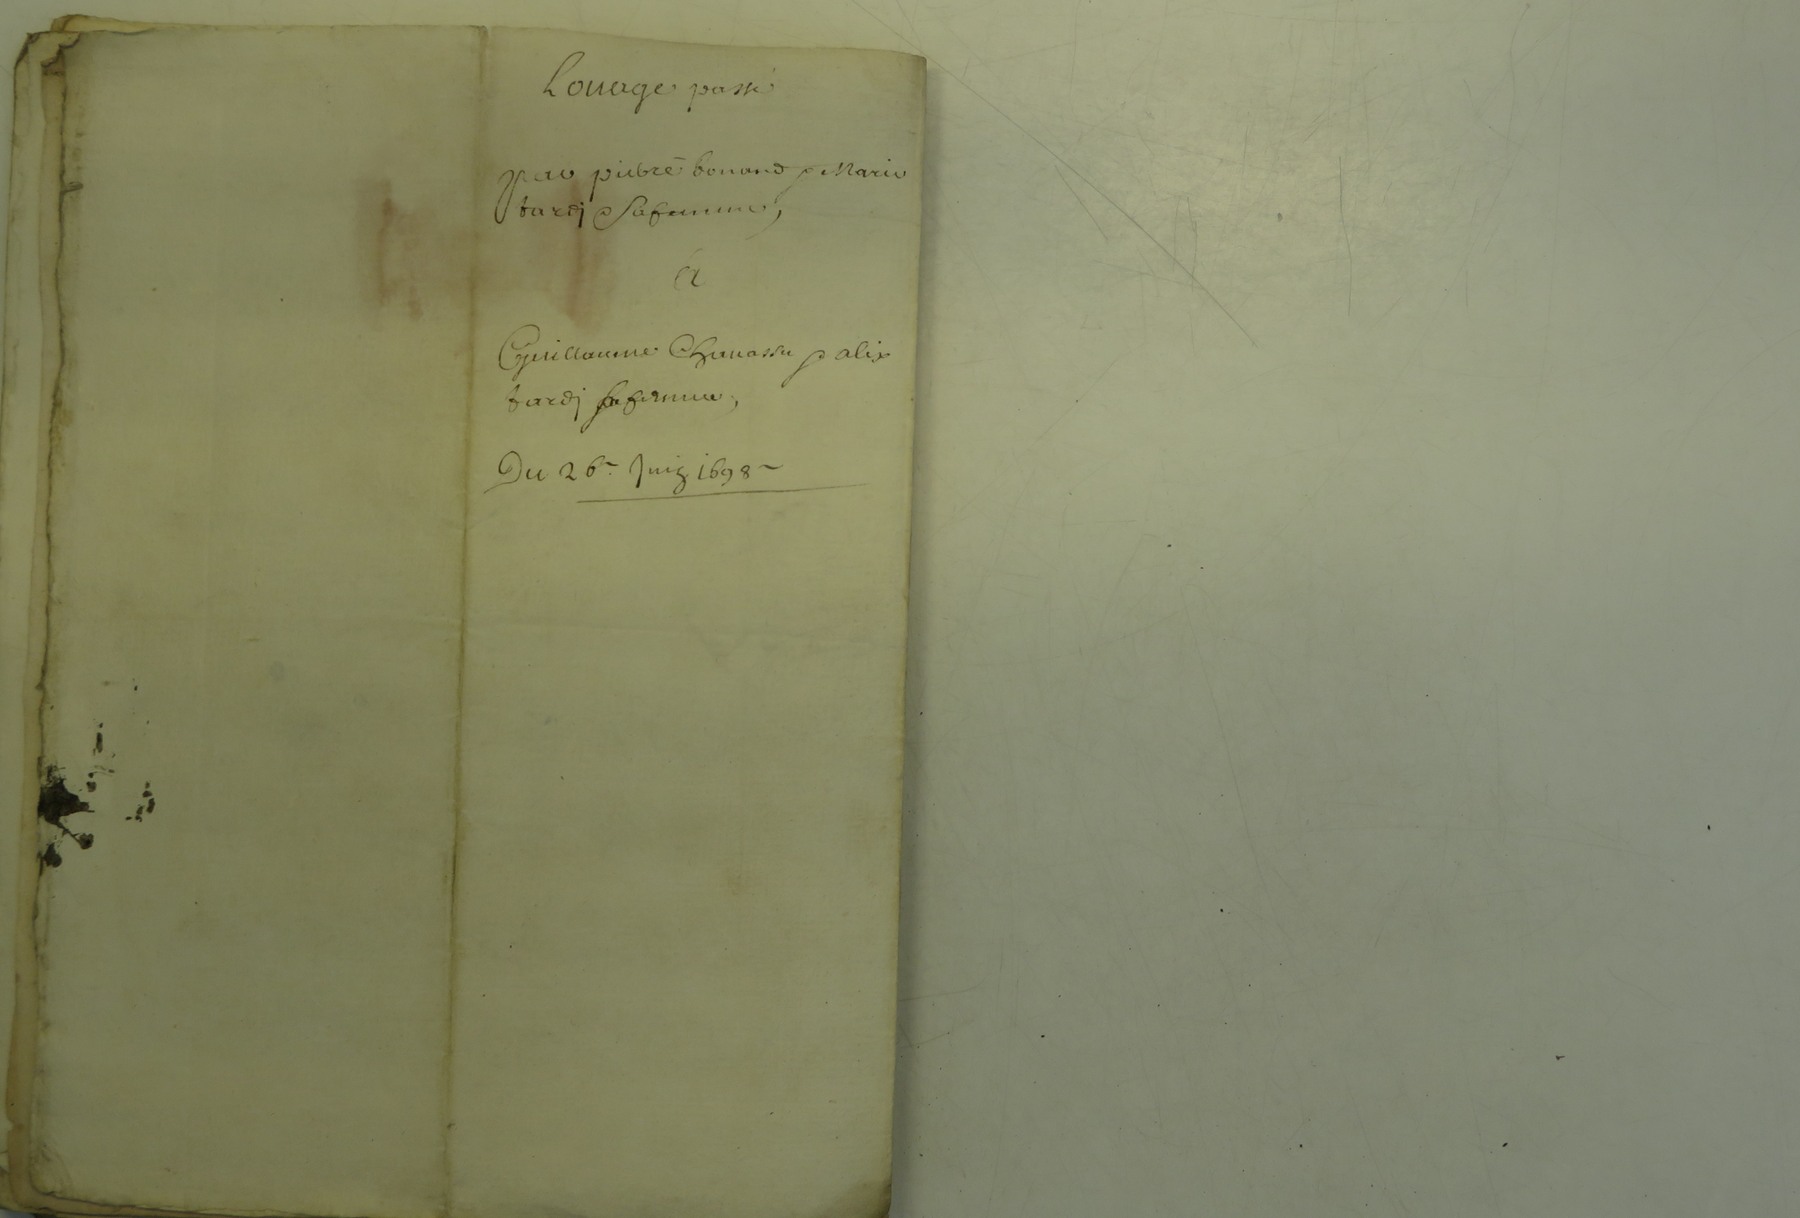 Louage passé
par pierre bonand & Marie
tardj Safemme,
A
Guillaume Chavassu & alix
tardj safemme,
Du 26e Juin 1698